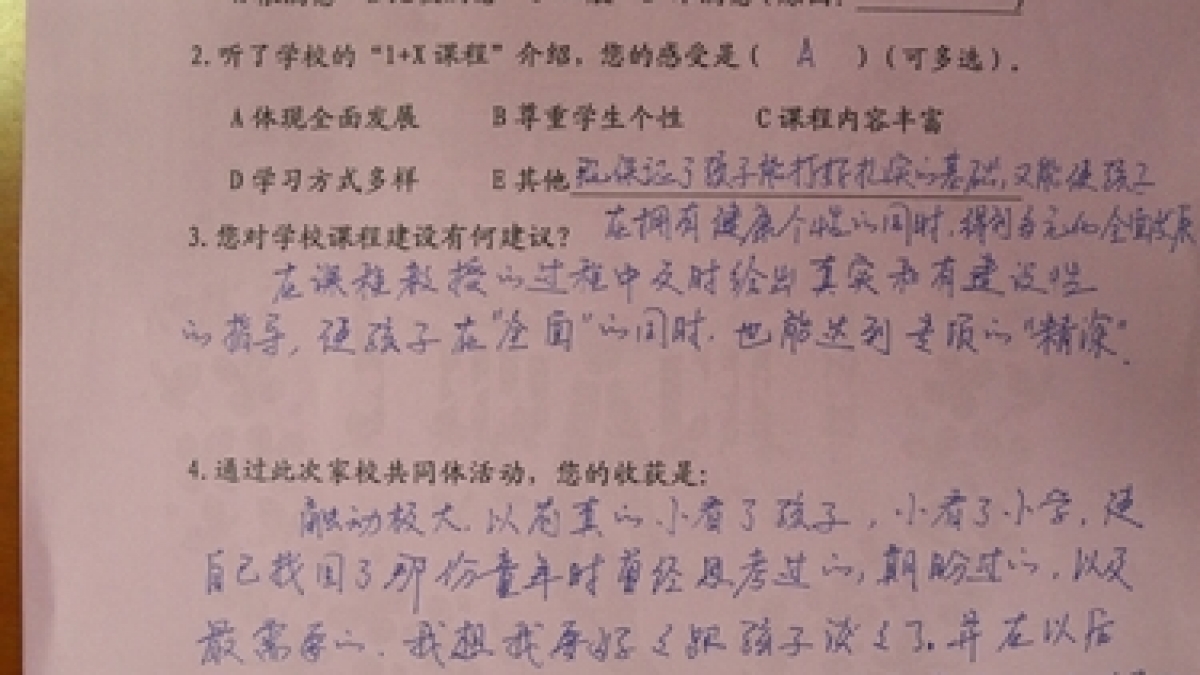 2.听了学校的“1+X课程”介绍，您的感受是（ A ）（可多选）.
A体现全面发展 B尊重学生个性 C课程内容丰富
D学习方式多样 E其他 既保证了孩子能打好扎实的基础,又能使孩子
在拥有健康个性的同时,得到多元化全面发展
3.您对学校课程建设有何建议?
在课程教授的过程中及时给出真实和有建设性
的指导,使孩子在“全面”的同时.也能达到专项的“精深”.
4.通过此次家校共同体活动，您的收获是:
触动极大.以前真的小看了孩子，小看了小学,使
自己找回了那份童年时曾经思考过的,期盼过的,以及
最需要的.我想我要好好跟孩子谈谈了.并在以后